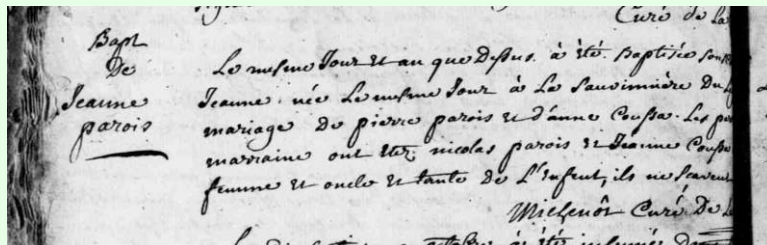 Curé de la
Bapt
De
Jeanne
parois
Le mesme Jour et an que Dessus. à été Baptisée sous
Jeanne. née Le mesme Jour à La Sauvinnière Du
mariage de pierre parois et d'anne Coussa. Les par
marraine ont etez nicolas parois et Jeanne Coussa
femme et oncle et tante de L'Enfent, ils ne scavent
Michenôt Curé De L